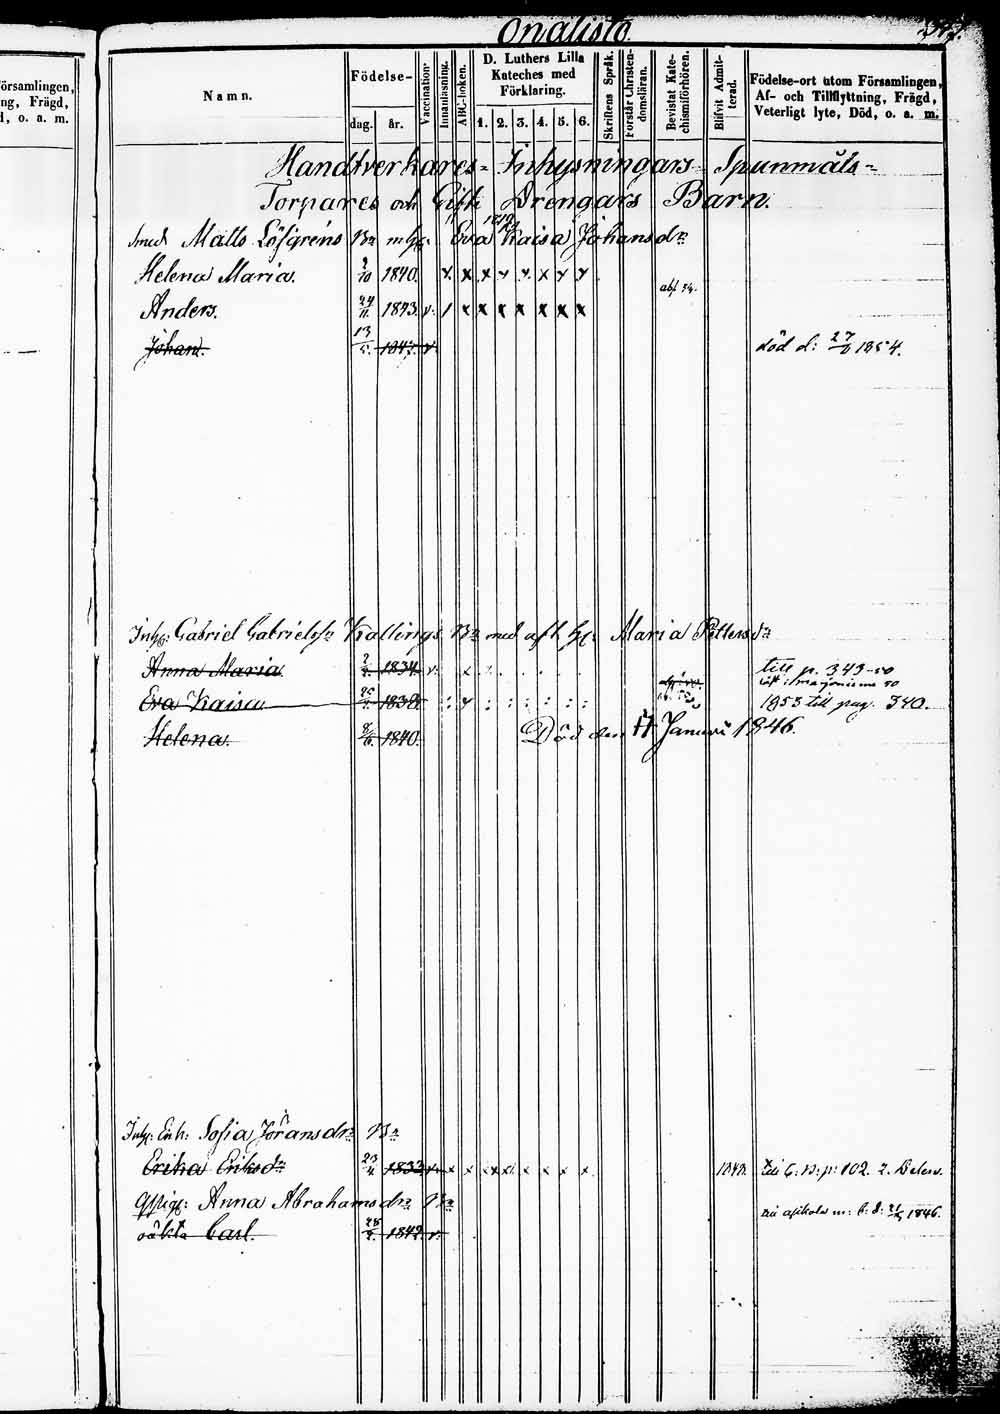 örsamlingen,
ng, Frägd,
d, o. a. m.
Onalisto.
Namn.
Födelse-
dag. år.
Vaccination
Innanläsning.
ABC-boken.
D. Luthers Lilla
Kateches med
Förklaring.
1. 2. 3. 4. 5. 6.
Skriftens Språk.
Förstår Christendomsläran.
Bevistat Kate-
chismiförhören.
Blifvit Admit-
terad.
Födelse-ort utom Församlingen,
Af- och Tillflyttning, Frägd,
Veterligt lyte, Död, o. a. m.
Handtverkares- Inhysningars- Spunmåls-
Torpares och Gifte Drengars Barn.
Smed Matts Löfgrens Bn m h: Eva Kaisa Johansdr
Helena Maria. 1840. x x x x x x x x
Anders. 24/11 1843. v. / x x x x x x x
Johan. 13/5 1847. v. död d: 1854.
Inh: Gabriel Gabrielss: Kallings Bn med afl. h: Maria Pettersdr
Anna Maria 1834. v. x till p. 343-50
Eva Kaisa 1838. 1853 till pag. 340.
Helena. 8/6 1840. Död den 17 Januari 1846.
Inh: Enk: Sofia Jöransdr Bn
Erika Eriksdr 23/4 1832 v. x x x x x x x x 1848. p: 102. 2. Delen.
Anna Abrahamsdr Bn
oäkta Carl. 28/2 1842 v. 1846.